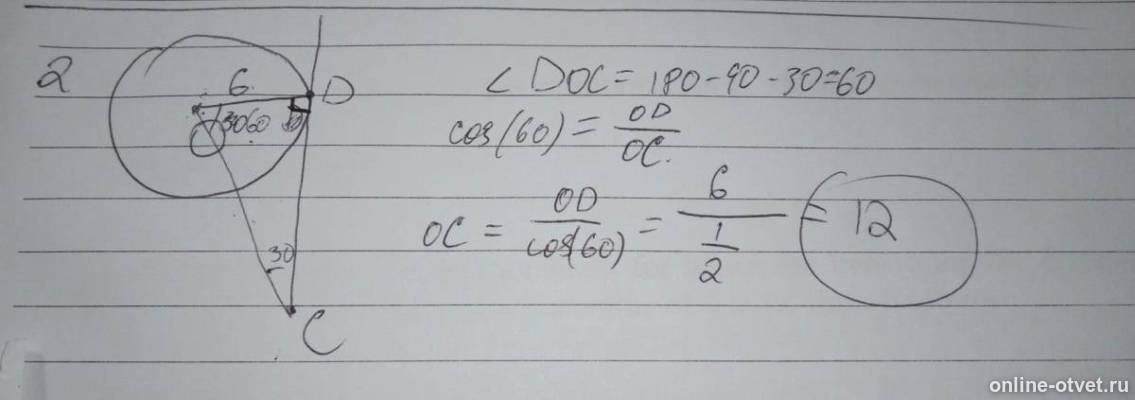 2
6
D
∠DOC = 180-90-30=60
30 60
cos(60) = OD/OC
OC = OD/cos(60) = 6/(1/2) = 12
30
C
online-otvet.ru